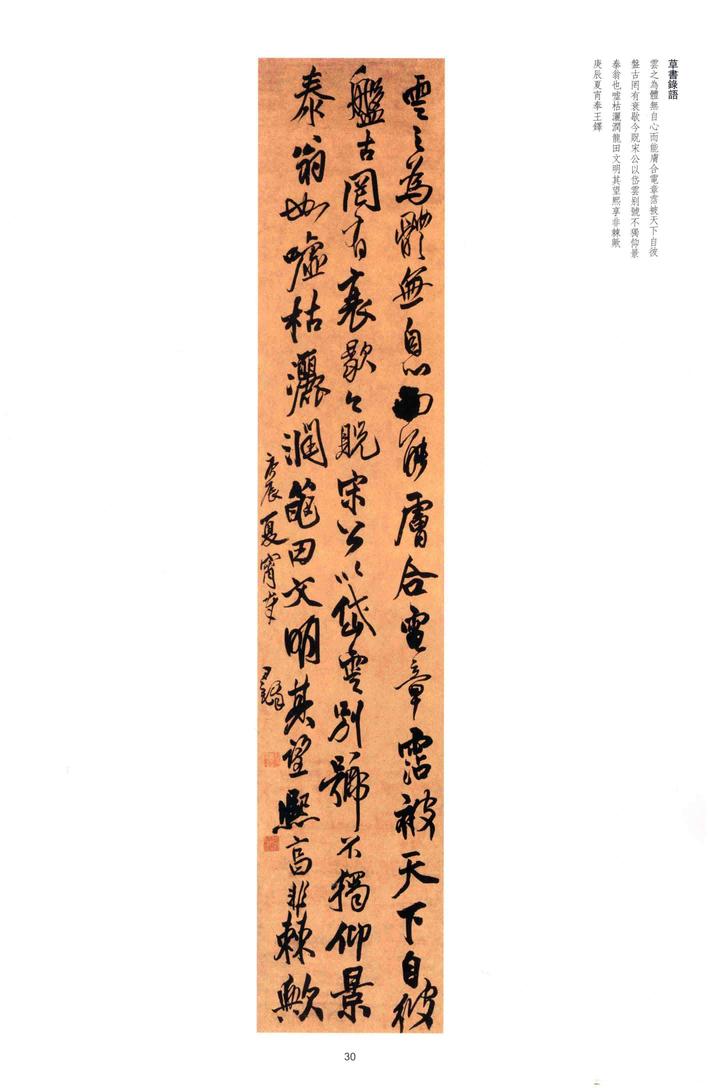 草書錄語
雲之為體無自心而能膚合電章霑被天下自彼
盤古罔有衰歇今既宋公以岱雲别號不獨仰景
泰翁也噓枯灑潤龍田文明其望熙享非棘歟
庚辰夏宵奉王鐸
雲之為體無自心而能膚合電章霑被天下自彼
盤古罔有衰歇今既宋公以岱雲别號不獨仰景
泰翁也噓枯灑潤龍田文明其望熙享非棘歟
庚辰夏宵奉 王鐸
30